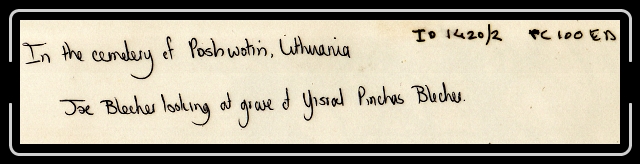 ID 1420/2 PC 100 ED
In the cemetery of Poshwotin, Lithuania
Joe Blecher looking at grave of Yisroel Pinchas Blecher.